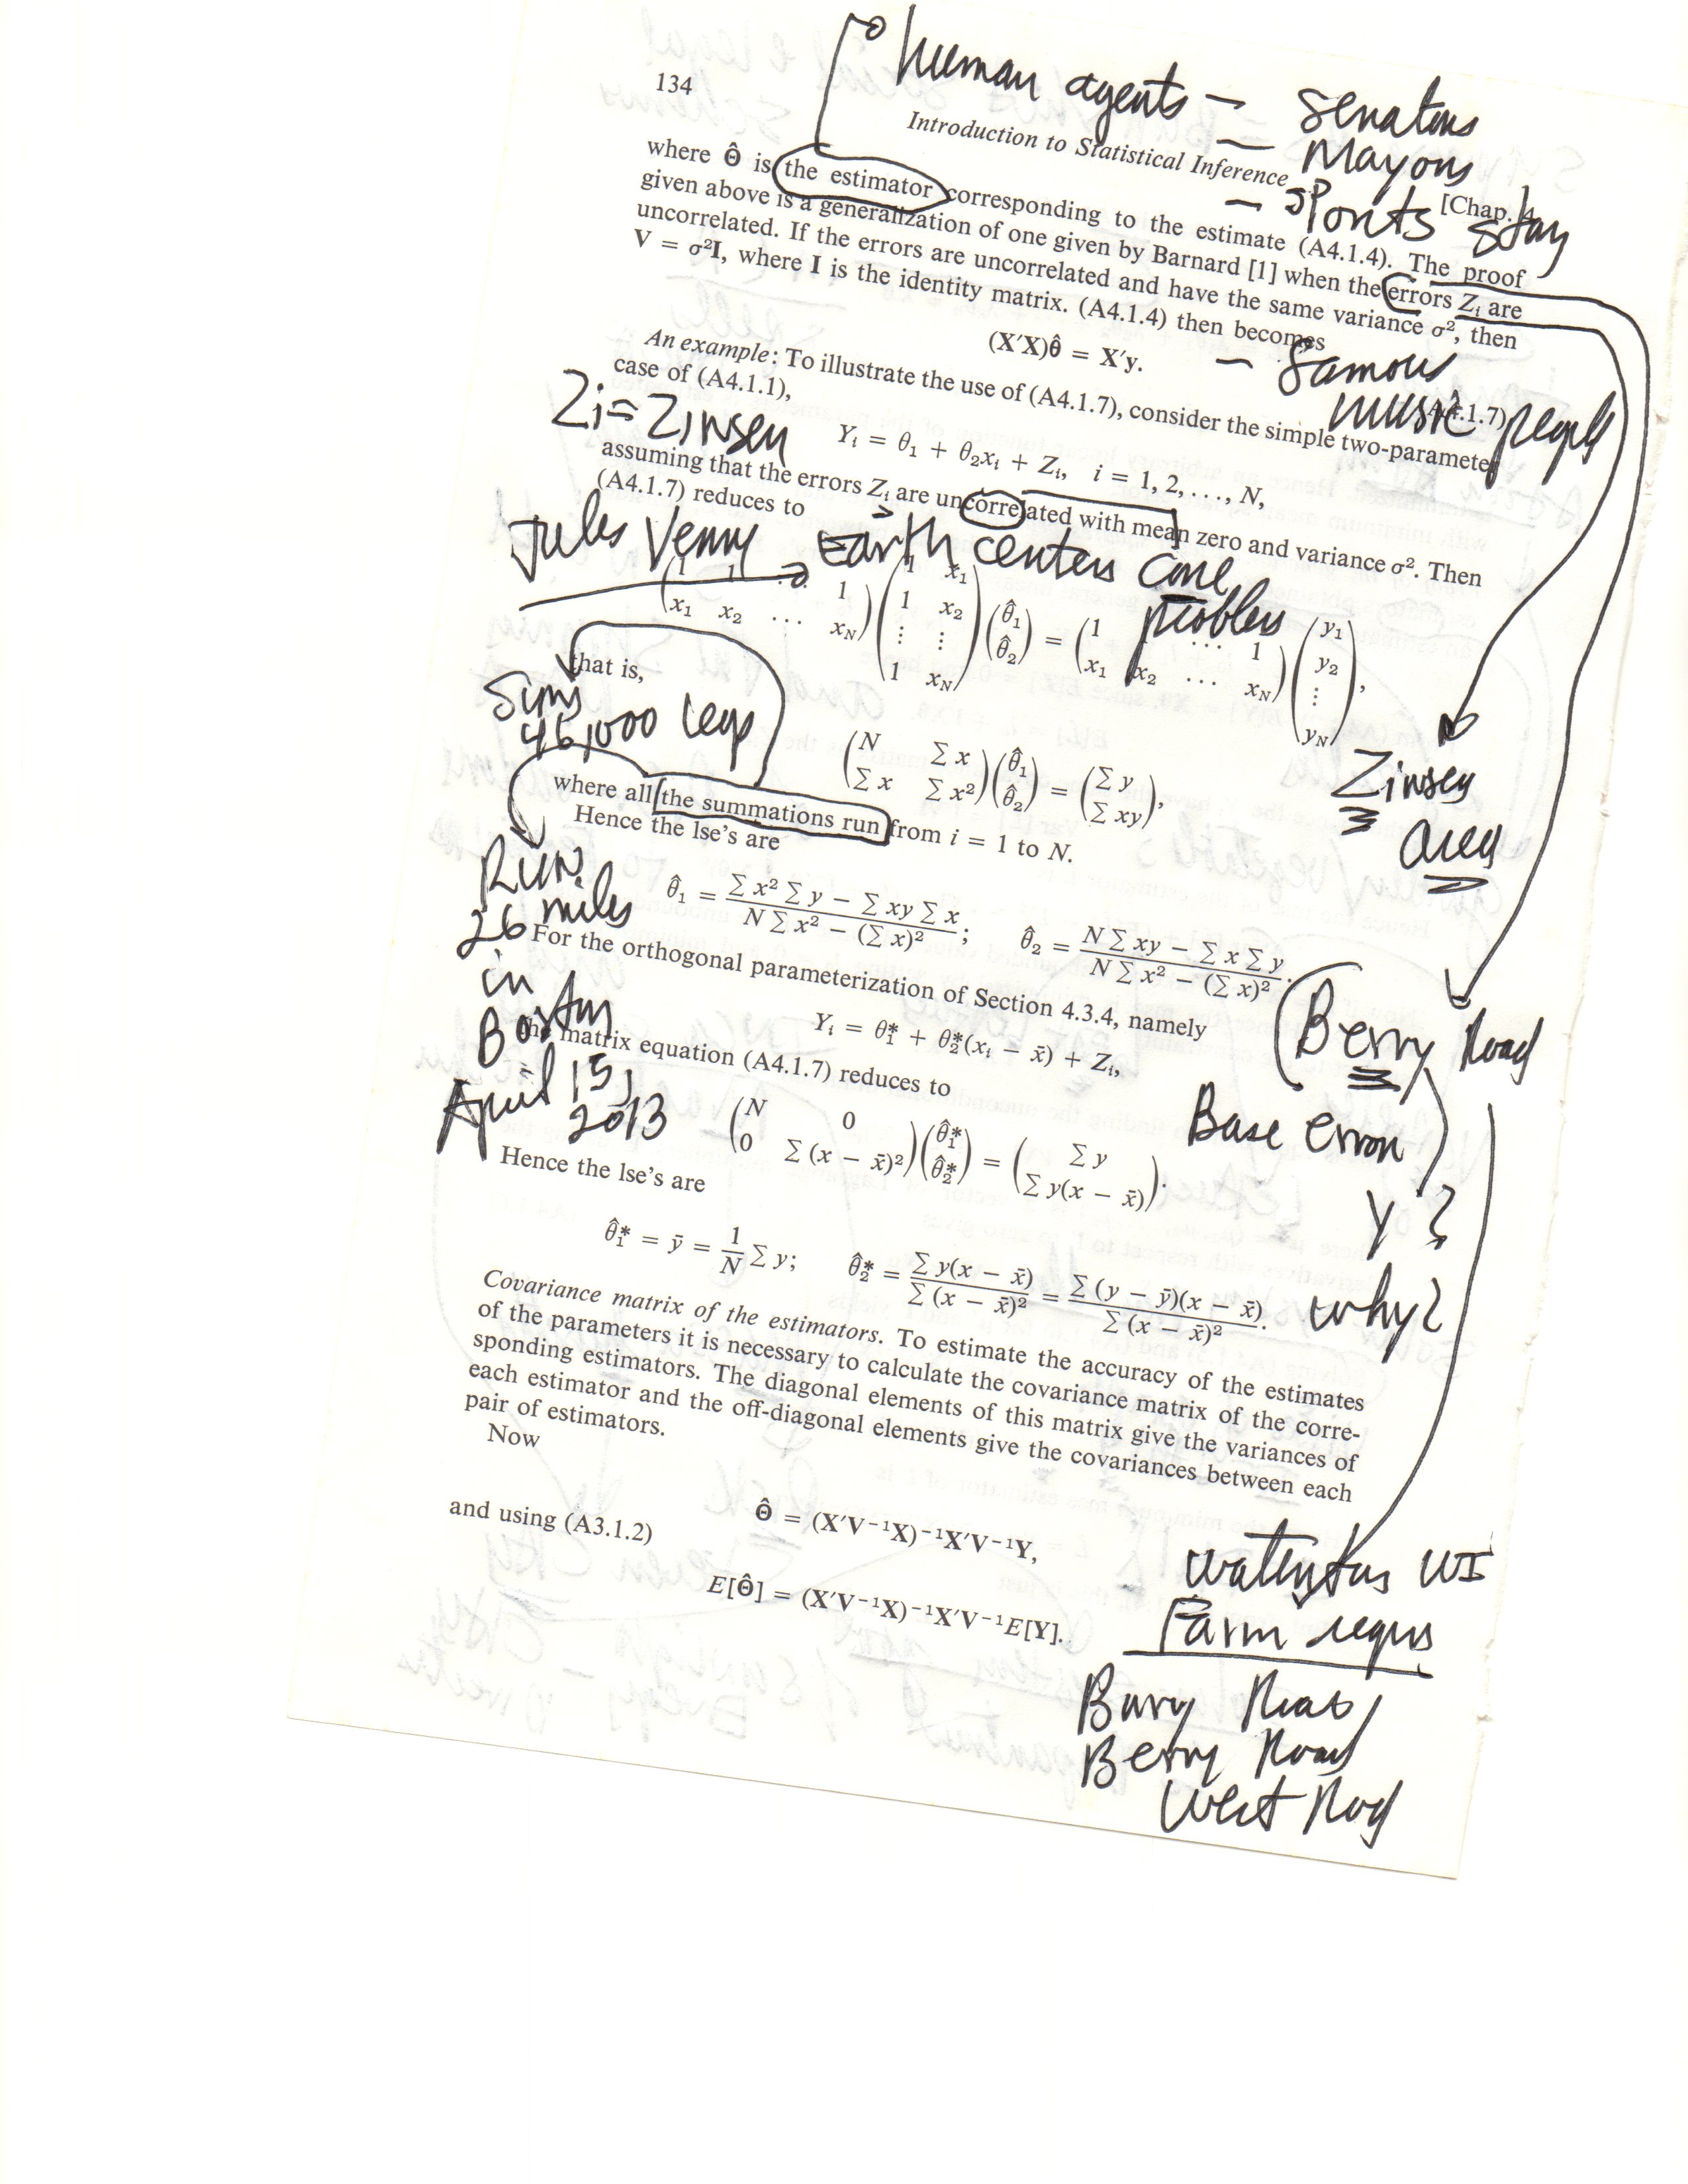 human agents — Senators
134
Introduction to Statistical Inference
— Mayors
[Chap. 4
— Sports star
where Θ̂ is the estimator corresponding to the estimate (A4.1.4). The proof
given above is a generalization of one given by Barnard [1] when the errors Zᵢ are
uncorrelated. If the errors are uncorrelated and have the same variance σ², then
V = σ²I, where I is the identity matrix. (A4.1.4) then becomes
(X′X)θ̂ = X′y.
(A4.1.7)
— famous
music people
An example: To illustrate the use of (A4.1.7), consider the simple two-parameter
case of (A4.1.1),
Zi = Zinsey
Yᵢ = θ₁ + θ₂xᵢ + Zᵢ, i = 1, 2, . . . , N,
assuming that the errors Zᵢ are uncorrelated with mean zero and variance σ². Then
(A4.1.7) reduces to
Jules Verny Earth centers core
problem
(1 1 . . . 1
x₁ x₂ . . . x_N) (1 x₁
1 x₂
⋮ ⋮
1 x_N) (θ̂₁
θ̂₂) = (1 . . . 1
x₁ x₂ . . . x_N) (y₁
y₂
⋮
y_N),
that is,
Sums
46,000 legs
(N ∑ x
∑ x ∑ x²) (θ̂₁
θ̂₂) = (∑ y
∑ xy),
Zinsey
area
where all the summations run from i = 1 to N.
Hence the lse's are
Run
26 miles
in
Boston
April 15,
2013
θ̂₁ = (∑ x² ∑ y − ∑ xy ∑ x) / (N ∑ x² − (∑ x)²); θ̂₂ = (N ∑ xy − ∑ x ∑ y) / (N ∑ x² − (∑ x)²).
For the orthogonal parameterization of Section 4.3.4, namely
Yᵢ = θ₁* + θ₂*(xᵢ − x̄) + Zᵢ,
Berry Road
the matrix equation (A4.1.7) reduces to
Base error
(N 0
0 ∑ (x − x̄)²) (θ̂₁*
θ̂₂*) = (∑ y
∑ y(x − x̄)).
Y ?
why?
Hence the lse's are
θ̂₁* = ȳ = (1/N) ∑ y; θ̂₂* = ∑ y(x − x̄) / ∑ (x − x̄)² = ∑ (y − ȳ)(x − x̄) / ∑ (x − x̄)².
Covariance matrix of the estimators. To estimate the accuracy of the estimates
of the parameters it is necessary to calculate the covariance matrix of the corre-
sponding estimators. The diagonal elements of this matrix give the variances of
each estimator and the off-diagonal elements give the covariances between each
pair of estimators.
Now
Θ̂ = (X′V⁻¹X)⁻¹X′V⁻¹Y,
and using (A3.1.2)
E[Θ̂] = (X′V⁻¹X)⁻¹X′V⁻¹E[Y].
WI
Farm
Berry Road
West Road